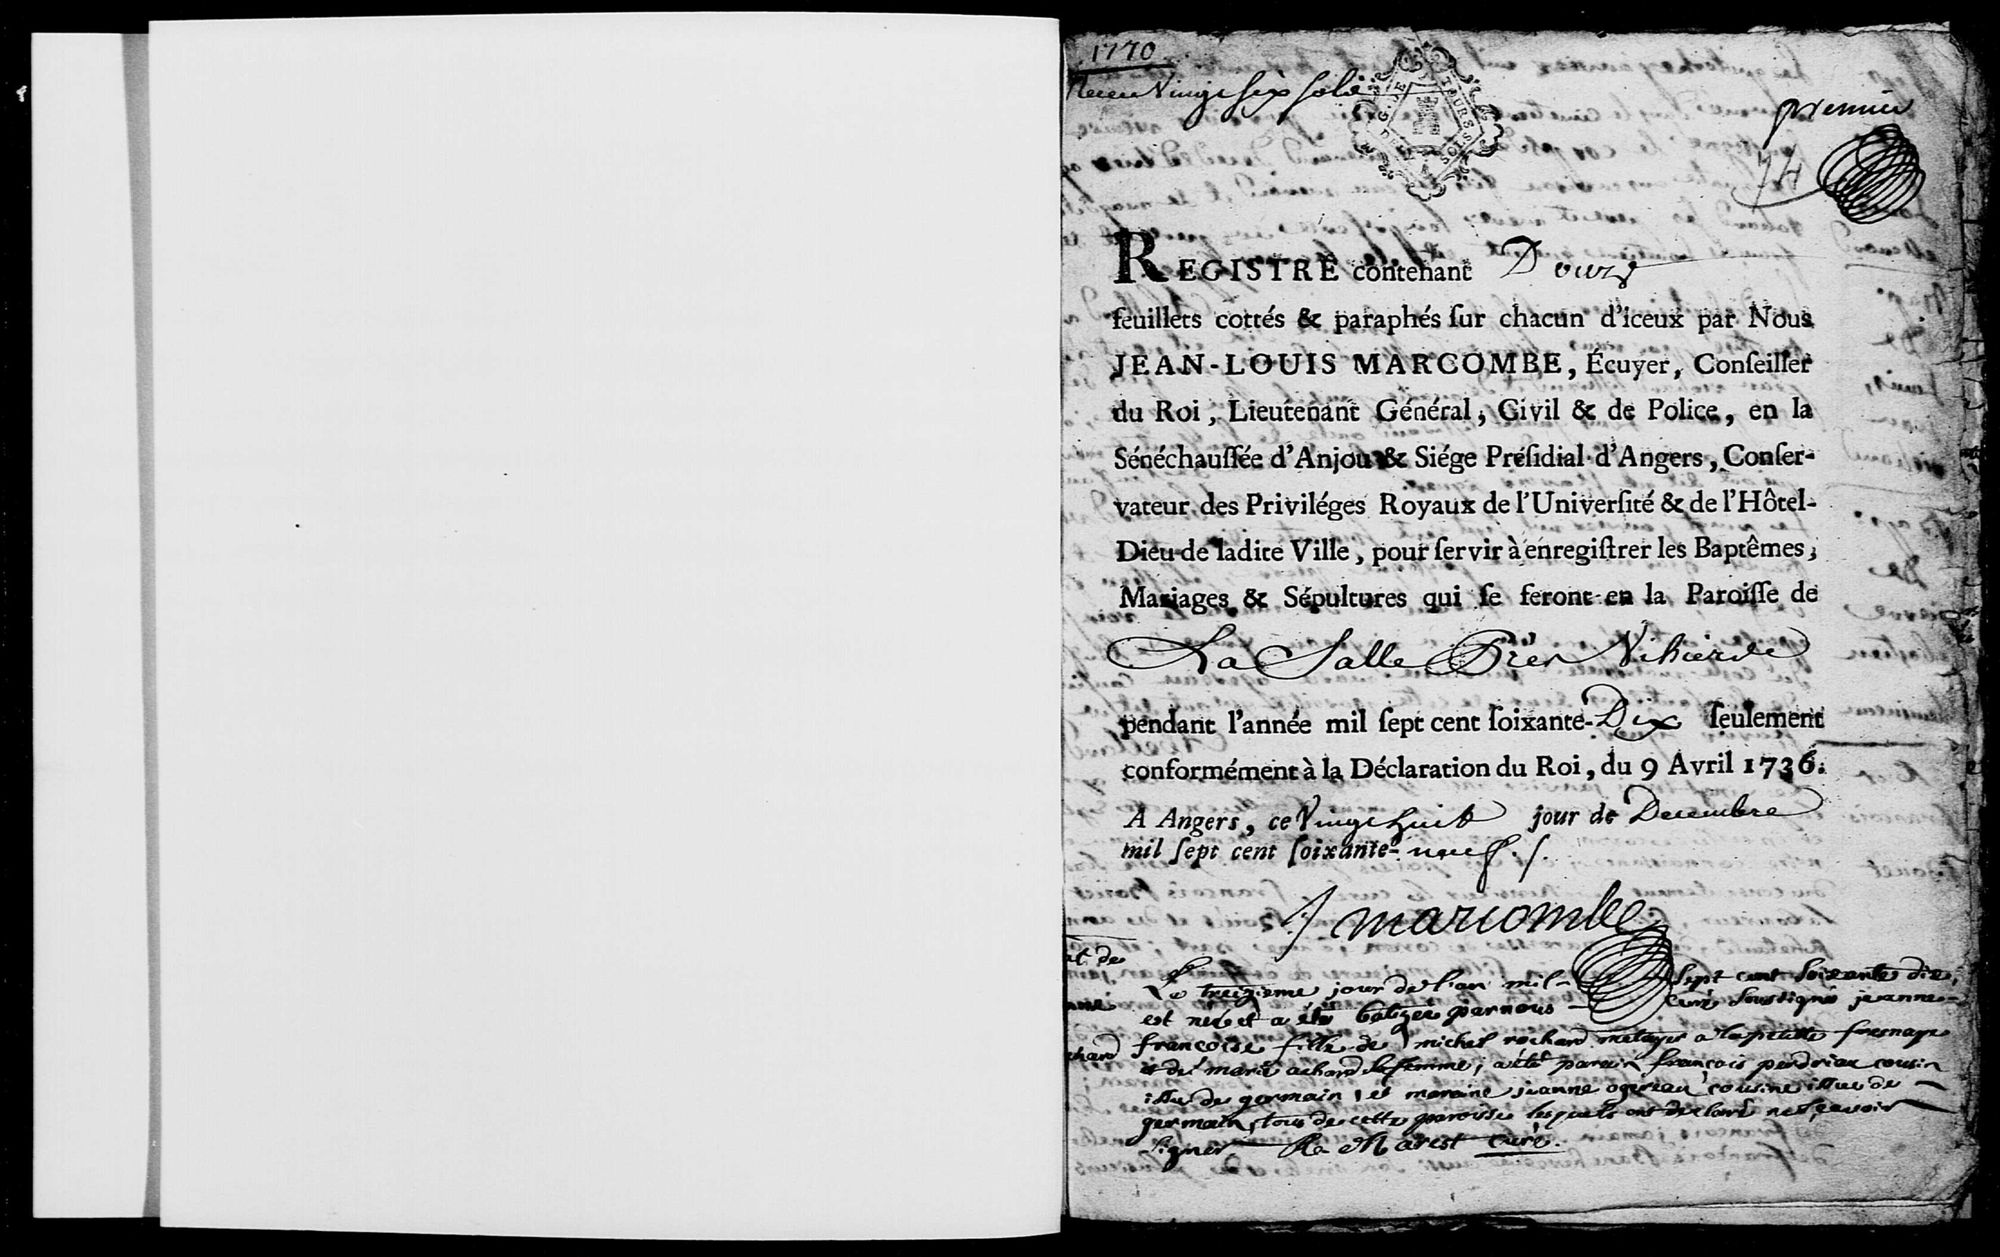 1770
Vingt six sols
G. DE TOURS
SOLS
premier
74
REGISTRE contenant Douze
feuillets cottés & paraphés ſur chacun d'iceux par Nous
JEAN-LOUIS MARCOMBE, Écuyer, Conſeiller
du Roi, Lieutenant Général, Civil & de Police, en la
Sénéchauſſée d'Anjou & Siége Préſidial d'Angers, Conſer-
vateur des Priviléges Royaux de l'Univerſité & de l'Hôtel-
Dieu de ladite Ville, pour ſervir à enregiſtrer les Baptêmes,
Mariages & Sépultures qui ſe feront en la Paroiſſe de
La Salle Près Vihiers
pendant l'année mil ſept cent ſoixante-Dix ſeulement
conformément à la Déclaration du Roi, du 9 Avril 1736.
A Angers, ce Vingt huit jour de Decembre
mil ſept cent ſoixante-neuf.
marcombe
Le treizieme jour de l'an mil sept cent soixante dix,
est née et a été batizée par nous curé soussigné jeanne
francoise fille de michel rochard metayer a la petite fresnaye
et de marie achard sa femme; a été parain françois perdriau cousin
issu de germain, et maraine jeanne ogereau cousine issue de
germain, tous de cette paroisse lesquels ont declaré ne sçavoir
signer Marest curé.